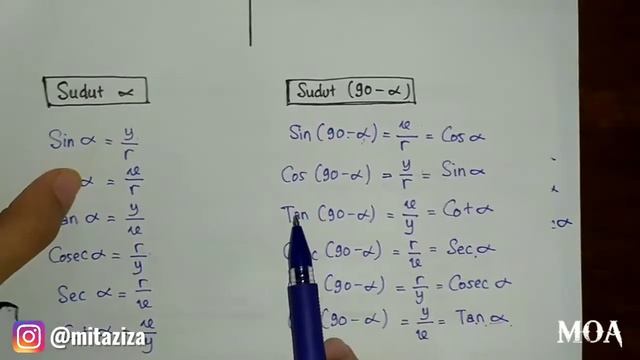 Sudut α
Sin α = y/r
α = x/r
an α = y/x
Cosec α = r/y
Sec α = r/x
α x/y
Sudut (90-α)
Sin (90-α) = x/r = Cos α
Cos (90-α) = y/r = Sin α
Tan (90-α) = x/y = Cot α
c (90-α) = r/x = Sec α
(90-α) = r/y = Cosec α
(90-α) = y/x = Tan α
α
@mitaziza
MOA